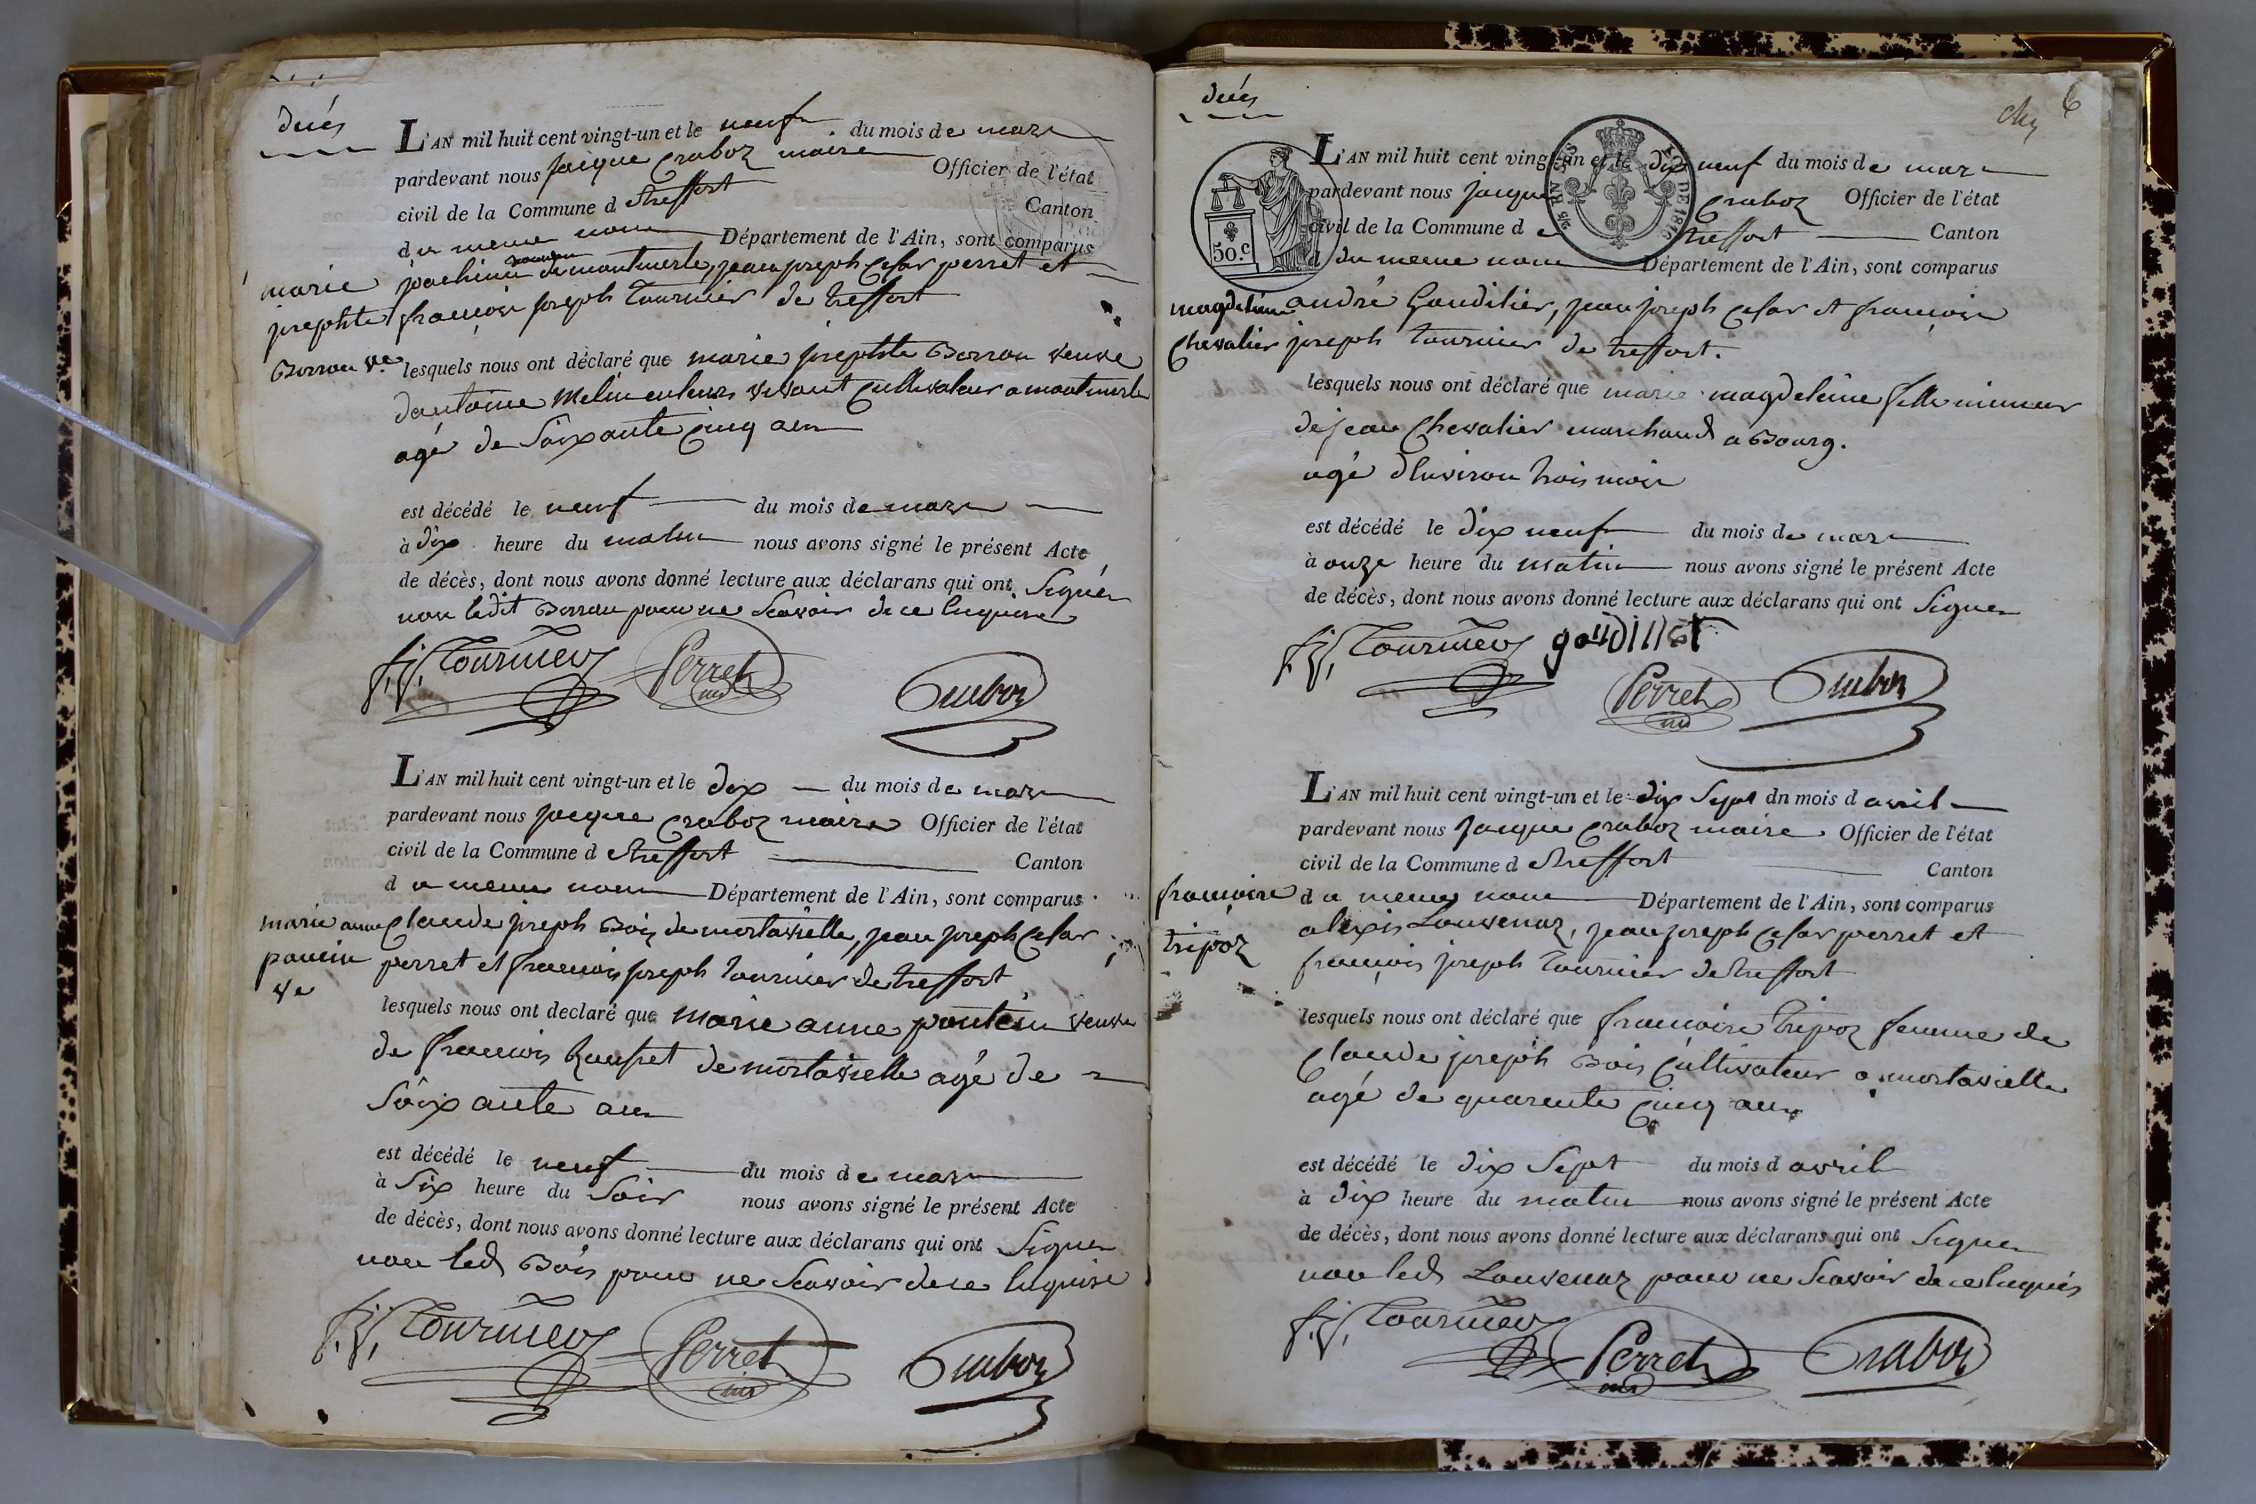 décès
L'AN mil huit cent vingt-un et le neuf du mois de mars
pardevant nous jacque Craboz maire Officier de l'état
civil de la Commune d treffort Canton
du meme nom Département de l'Ain, sont comparus
marie joachim de montmerle, jean joseph Cesar perret et
josephte françois joseph tournier de treffort
Borron Ve lesquels nous ont déclaré que marie josephte Borron veuve
dantoine Melin vivant Cultivateur a montmerle
agé de Soixante Cinq ans
est décédé le neuf du mois de mars
à dix heure du matin nous avons signé le présent Acte
de décès, dont nous avons donné lecture aux déclarans qui ont Signés
non ledit Borron pour ne Scavoir de ce Enquis
f. j. Tournier Perret Craboz
L'AN mil huit cent vingt-un et le dix du mois de mars
pardevant nous jacque Craboz maire Officier de l'état
civil de la Commune d treffort Canton
du meme nom Département de l'Ain, sont comparus
marie anne Claude joseph Bois de mortavielle, jean joseph Cesar
poncin perret et françois joseph tournier de treffort
Ve
lesquels nous ont declaré que marie anne veuve
de francois de mortavielle agé de
Soixante ans
est décédé le neuf du mois de mars
à Six heure du Soir nous avons signé le présent Acte
de décès, dont nous avons donné lecture aux déclarans qui ont Signer
non led Bois pour ne Scavoir de ce Enquise
f. j. Tournier Perret Craboz
décès
6
L'AN mil huit cent vingt-un et le dix neuf du mois de mars
pardevant nous jacque Craboz Officier de l'état
civil de la Commune de treffort Canton
50.C
d du meme nom Département de l'Ain, sont comparus
magdeleine andré Goudilier, jean joseph Cesar et françois
Chevalier joseph tournier de treffort.
lesquels nous ont déclaré que marie magdeleine fille mineur
de jean Chevalier marchand a Bourg.
agé d'Environ trois mois
est décédé le dix neuf du mois de mars
à onze heure du matin nous avons signé le présent Acte
de décès, dont nous avons donné lecture aux déclarans qui ont Signer
f. j. Tournier goudillet
Perret Craboz
L'AN mil huit cent vingt-un et le dix Sept dn mois d avril
pardevant nous jacque Craboz maire Officier de l'état
civil de la Commune d treffort Canton
francoise du meme nom Département de l'Ain, sont comparus
tripoz alexis Louvenaz, jean joseph Cesar perret et
françois joseph tournier de treffort
lesquels nous ont déclaré que francoise tripoz femme de
Claude joseph Bois Cultivateur a mortavielle
agé de quarente Cinq ans
est décédé le dix Sept du mois d avril
à dix heure du matin nous avons signé le présent Acte
de décès, dont nous avons donné lecture aux déclarans qui ont Signer
non led Louvenaz pour ne Scavoir de ce Enquis
f. j. Tournier Perret Craboz